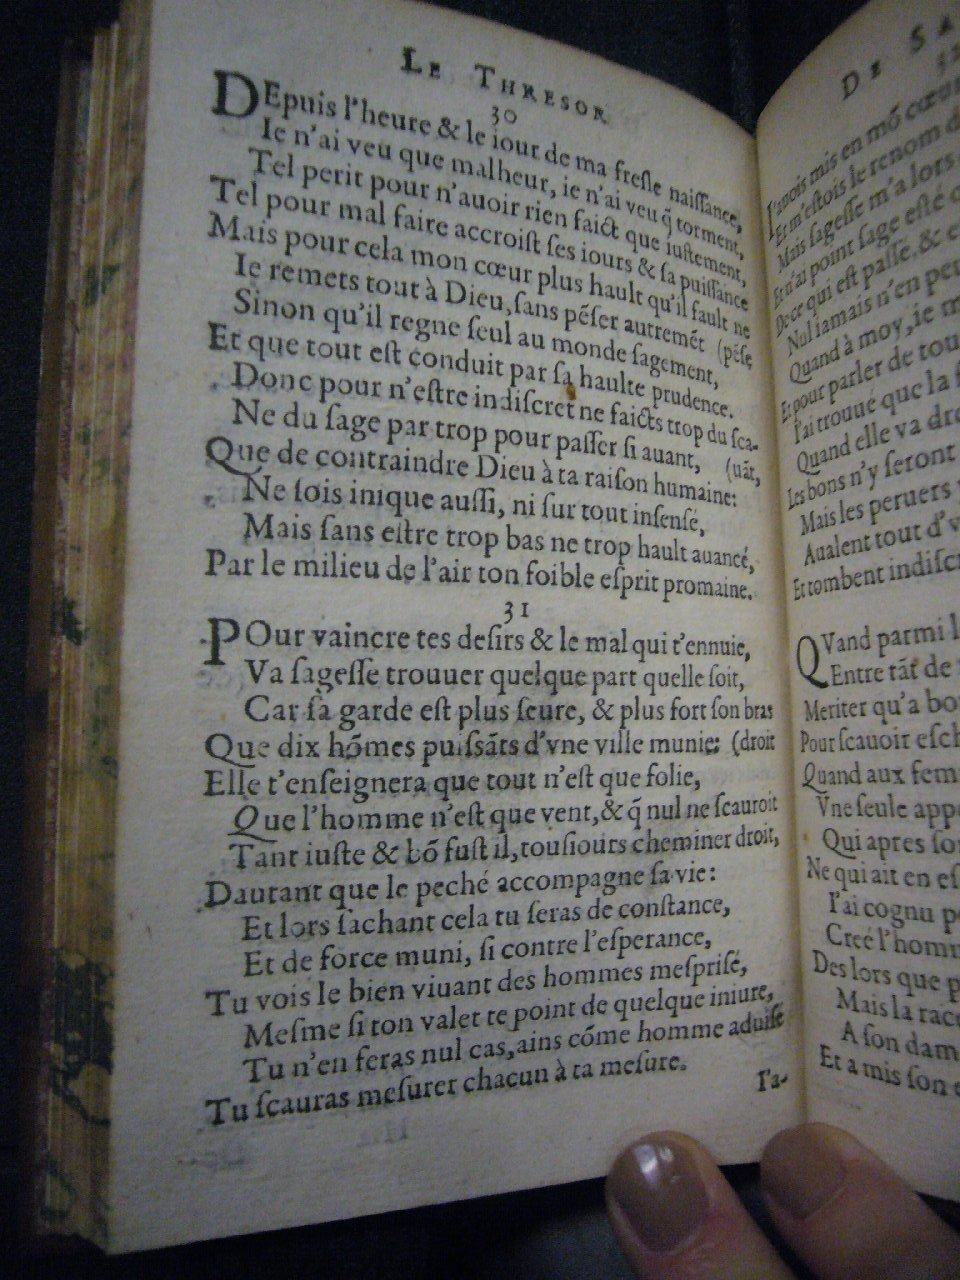 LE THRESOR
30
DEpuis l'heure & le iour de ma fresle naissance,
Ie n'ai veu que malheur, ie n'ai veu q̃ torment,
Tel perit pour n'auoir rien faict que iustement,
Tel pour mal faire accroist ses iours & sa puissance
Mais pour cela mon cœur plus hault qu'il fault ne
Ie remets tout à Dieu, sans pẽser autremẽt (pẽse
Sinon qu'il regne seul au monde sagement,
Et que tout est conduit par sa haulte prudence.
Donc pour n'estre indiscret ne faicts trop du sca-
Ne du sage par trop pour passer si auant, (uãt,
Que de contraindre Dieu à ta raison humaine:
Ne sois inique aussi, ni sur tout insensé,
Mais sans estre trop bas ne trop hault auancé,
Par le milieu de l'air ton foible esprit promaine.
31
POur vaincre tes desirs & le mal qui t'ennuie,
Va sagesse trouuer quelque part quelle soit,
Car sa garde est plus seure, & plus fort son bras
Que dix hõmes puissãts d'vne ville munie: (droit
Elle t'enseignera que tout n'est que folie,
Que l'homme n'est que vent, & q̃ nul ne scauroit
Tant iuste & bõ fust il, tousiours cheminer droit,
Dautant que le peché accompagne sa vie:
Et lors sachant cela tu seras de constance,
Et de force muni, si contre l'esperance,
Tu vois le bien viuant des hommes mesprisé,
Mesme si ton valet te point de quelque iniure,
Tu n'en feras nul cas, ains cõme homme aduise
Tu scauras mesurer chacun à ta mesure.
I'a-
DE SA
I'auois mis en mõ cœur
Et m'estois le renom d
Mais sagesse m'a lors
Et n'ai point sage esté
De ce qui est passé, & e
Nul iamais n'en peu
Quand à moy, ie m
Et pour parler de tou
I'ai trouué que la f
Quand elle va dro
Les bons n'y seront
Mais les peruers
Aualent tout d'v
Et tombent indiscr
QVand parmi l
Entre tãt de
Meriter qu'a bo
Pour scauoir esch
Quand aux fem
Vne seule appe
Qui apres so
Ne qui ait en es
I'ai cognu p
Creé l'homm
Des lors que p
Mais la race
A son dam
Et a mis son